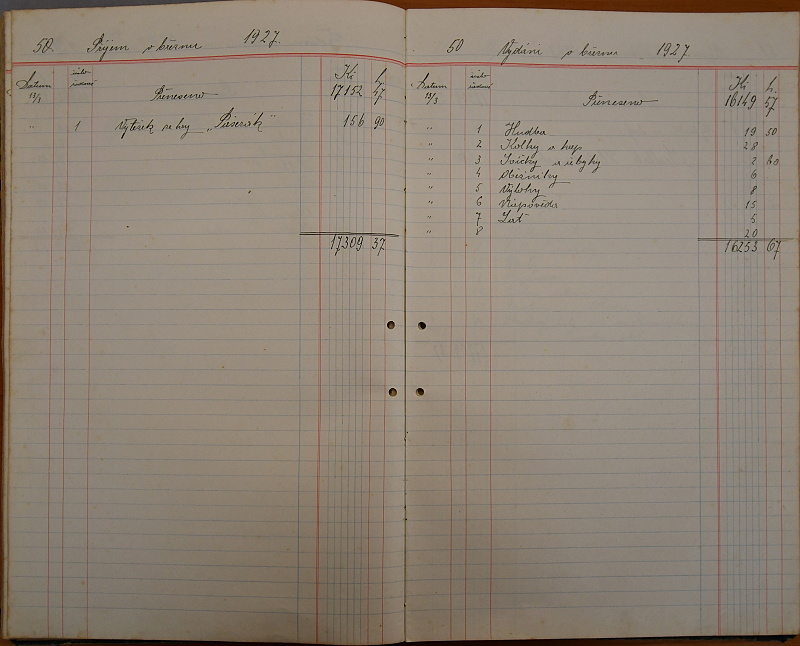 50. Příjem v březnu 1927.
Datum číslo Kč h.
13/3 Přeneseno 17152 47
" 1 Výtěžek ze hry „Pašerák“ 156 90
17309 37
50 Vydání v březnu 1927.
Datum číslo Kč h.
13/3 Přeneseno 16149 57
" 1 Hudba 19 50
" 2 Kolky a 28
" 3 Svíčky a 2 60
" 4 6
" 5 Výlohy 8
" 6 Nápověda 15
" 7 5
" 8 20
16253 67